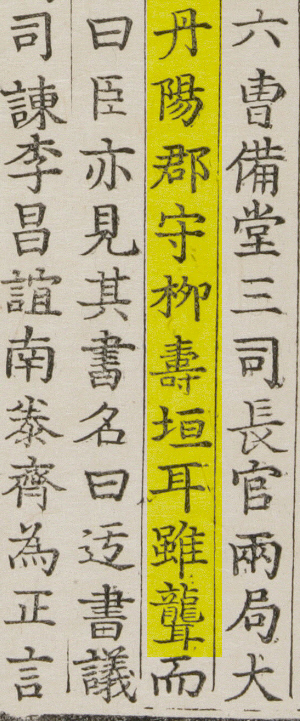 六曺備堂三司長官兩局大
丹陽郡守柳壽垣耳雖聾而
曰臣亦見其書名曰迃書議
司諫李昌誼南泰齊為正言